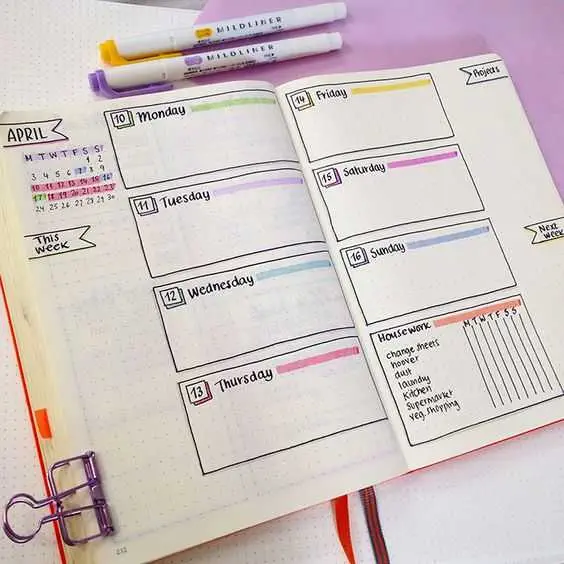 MILDLINER
MILDLINER
APRIL
M T W T F S S
1 2
3 4 5 6 7 8 9
10 11 12 13 14 15 16
17 18 19 20 21 22 23
24 25 26 27 28 29 30
This
week
10 Monday
11 Tuesday
12 Wednesday
13 Thursday
14 Friday
15 Saturday
16 Sunday
Housework
M T W T F S S
change sheets
hoover
dust
laundry
kitchen
supermarket
veg. shopping
Projects
Next
week